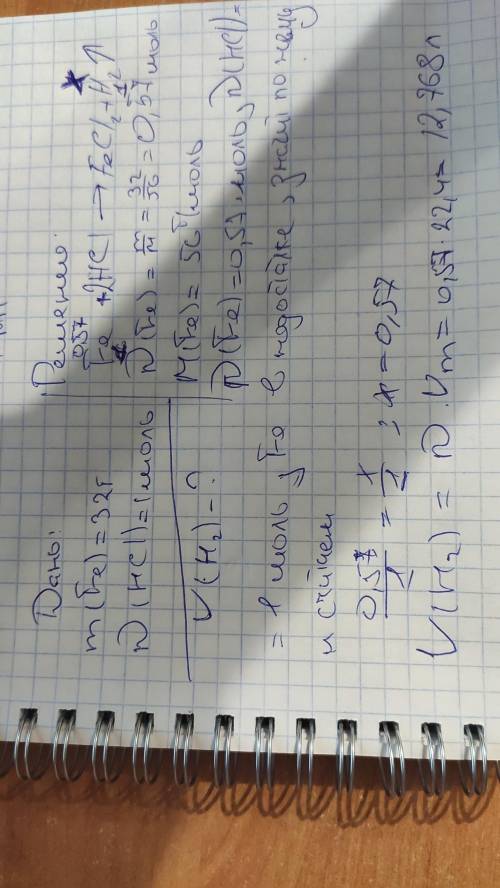 Дань:
m(Fe)=32г
n(HCl)=1 моль
V(H2)-?
Решение:
0,57 x
Fe+2HCl→FeCl2+H2↑
1 1
n(Fe)=m/M=32/56=0,57 моль
M(Fe)=56 г/моль
n(Fe)=0,57 моль, n(HCl)=
=1 моль, Fe в недостатке, значит по нему
и считаем
0,57/1=x/1; x=0,57
V(H2)=n·Vm=0,57·22,4=12,768л